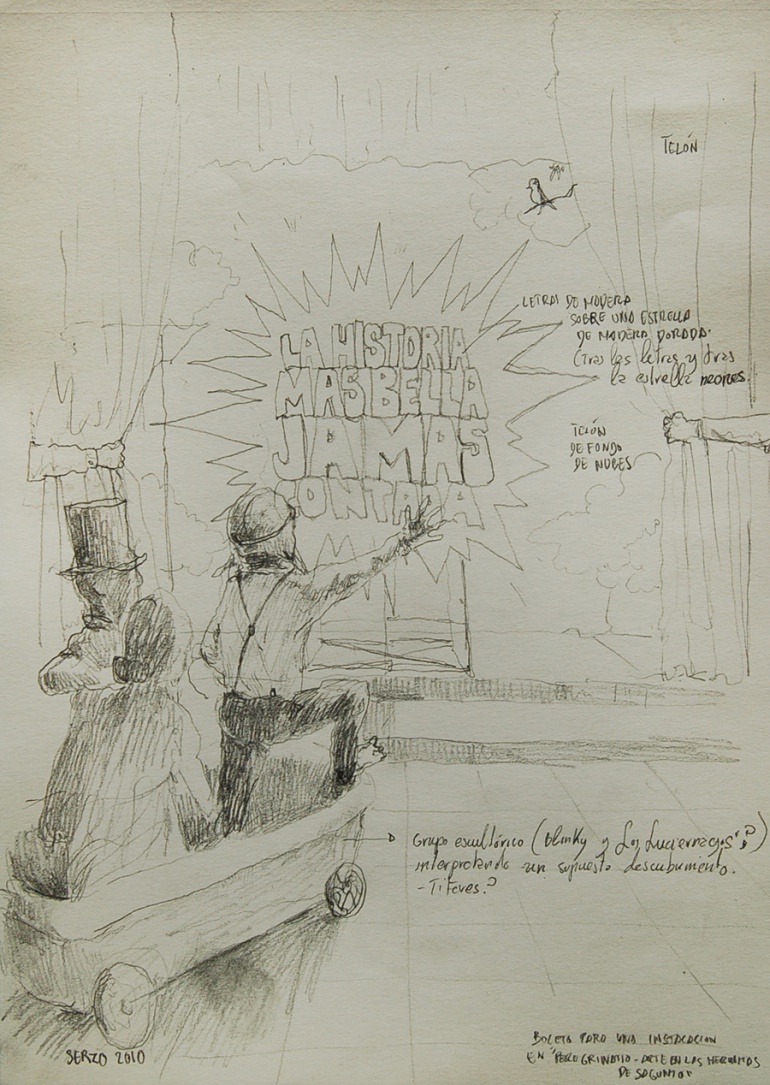 TELÓN
LETRAS DE MADERA
SOBRE UNA ESTRELLA
DE MADERA DORADA.
(Tras las letras y tras
la estrella neones
LA HISTORIA
MAS BELLA
JAMAS
CONTADA
TELÓN
DE FONDO
DE NUBES
Grupo escultórico (Blinky y Los Luciernagos"?)
interpretando un supuesto descubrimento.
- Titeres?
SERZO 2010
BOCETO PARA UNA INSTALACION
EN "PEREGRINATIO - ARTE EN LAS HERMITAS
DE SAGUNTO"